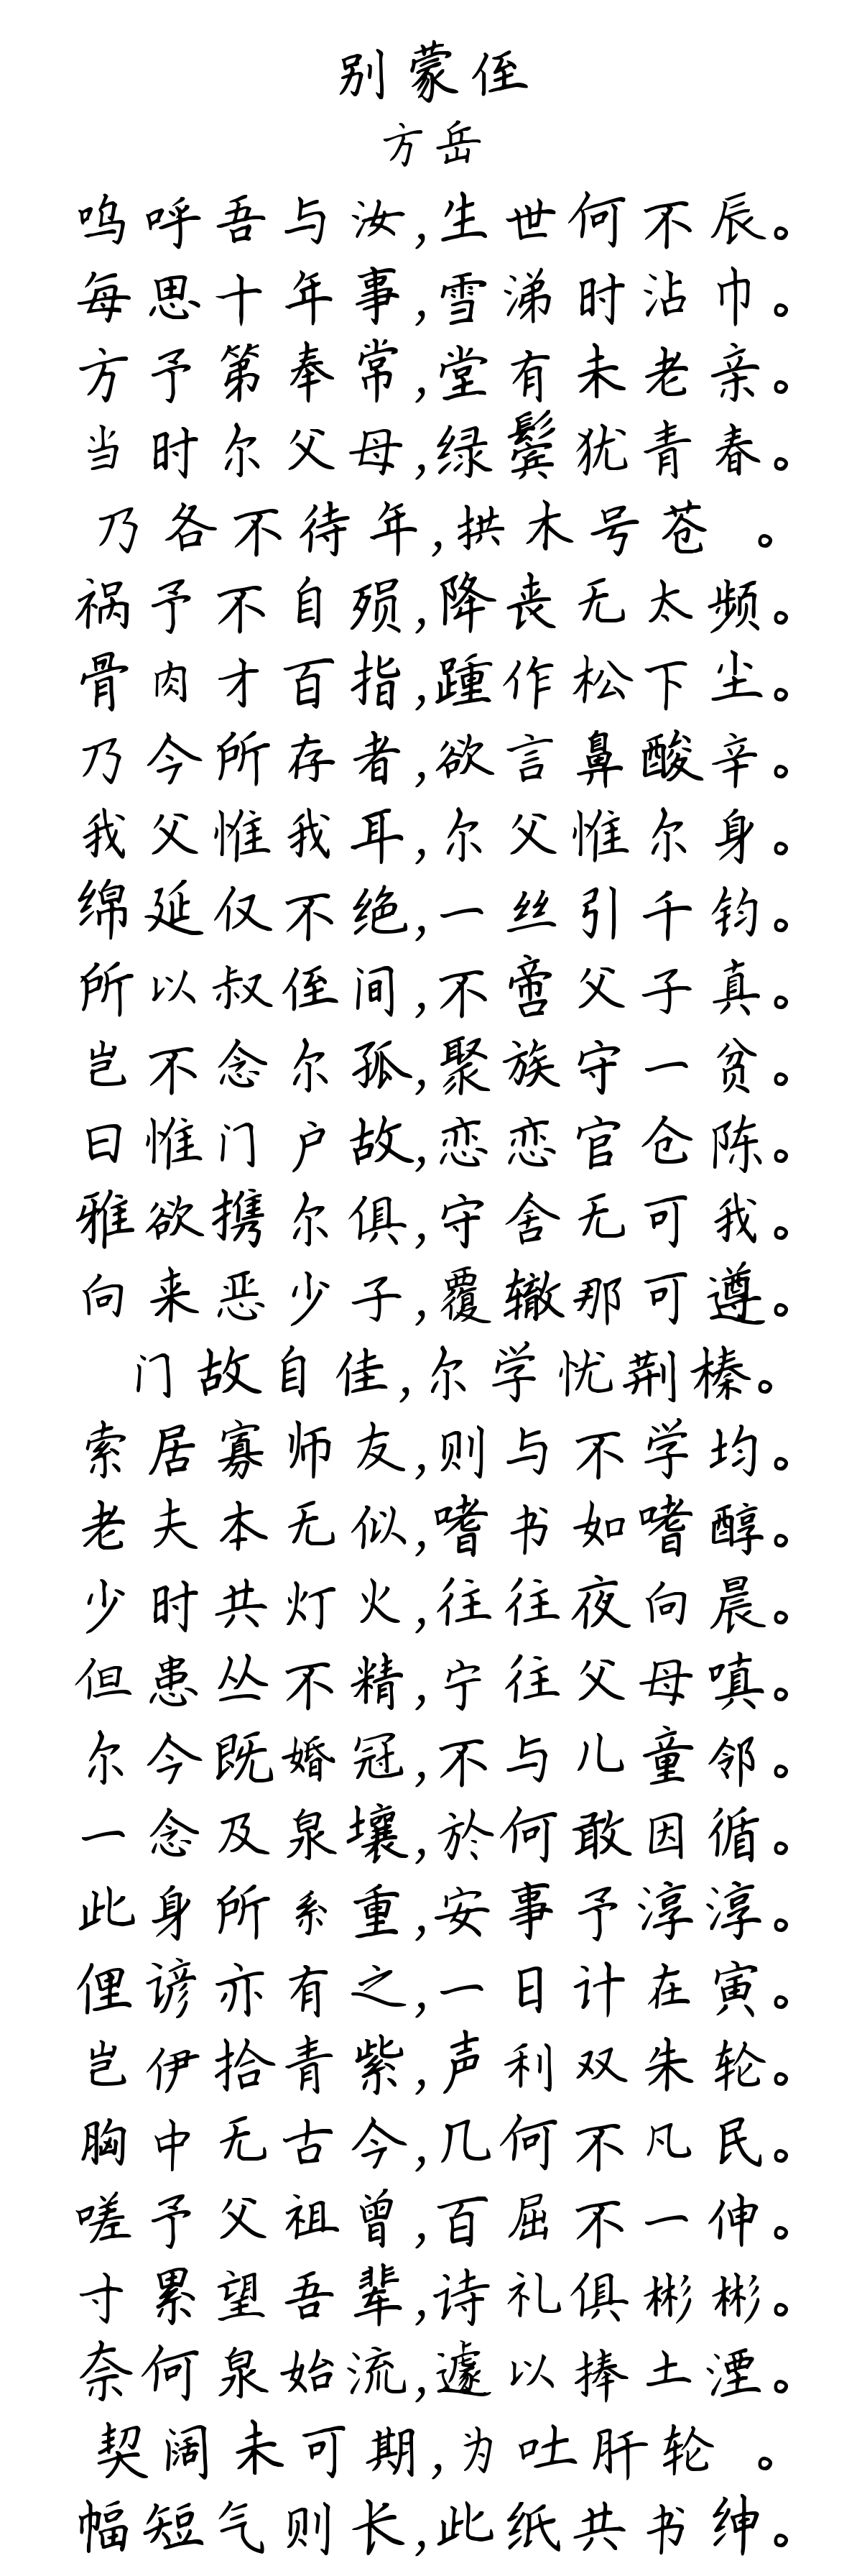 别蒙侄
方岳
呜呼吾与汝,生世何不辰。
每思十年事,雪涕时沾巾。
方予第奉常,堂有未老亲。
当时尔父母,绿鬓犹青春。
乃各不待年,拱木号苍 。
祸予不自殒,降丧无太频。
骨肉才百指,踵作松下尘。
乃今所存者,欲言鼻酸辛。
我父惟我耳,尔父惟尔身。
绵延仅不绝,一丝引千钧。
所以叔侄间,不啻父子真。
岂不念尔孤,聚族守一贫。
曰惟门户故,恋恋官仓陈。
雅欲携尔俱,守舍无可我。
向来恶少子,覆辙那可遵。
门故自佳,尔学忧荆榛。
索居寡师友,则与不学均。
老夫本无似,嗜书如嗜醇。
少时共灯火,往往夜向晨。
但患丛不精,宁往父母嗔。
尔今既婚冠,不与儿童邻。
一念及泉壤,於何敢因循。
此身所系重,安事予淳淳。
俚谚亦有之,一日计在寅。
岂伊拾青紫,声利双朱轮。
胸中无古今,几何不凡民。
嗟予父祖曾,百屈不一伸。
寸累望吾辈,诗礼俱彬彬。
奈何泉始流,遽以捧土湮。
契阔未可期,为吐肝轮 。
幅短气则长,此纸共书绅。